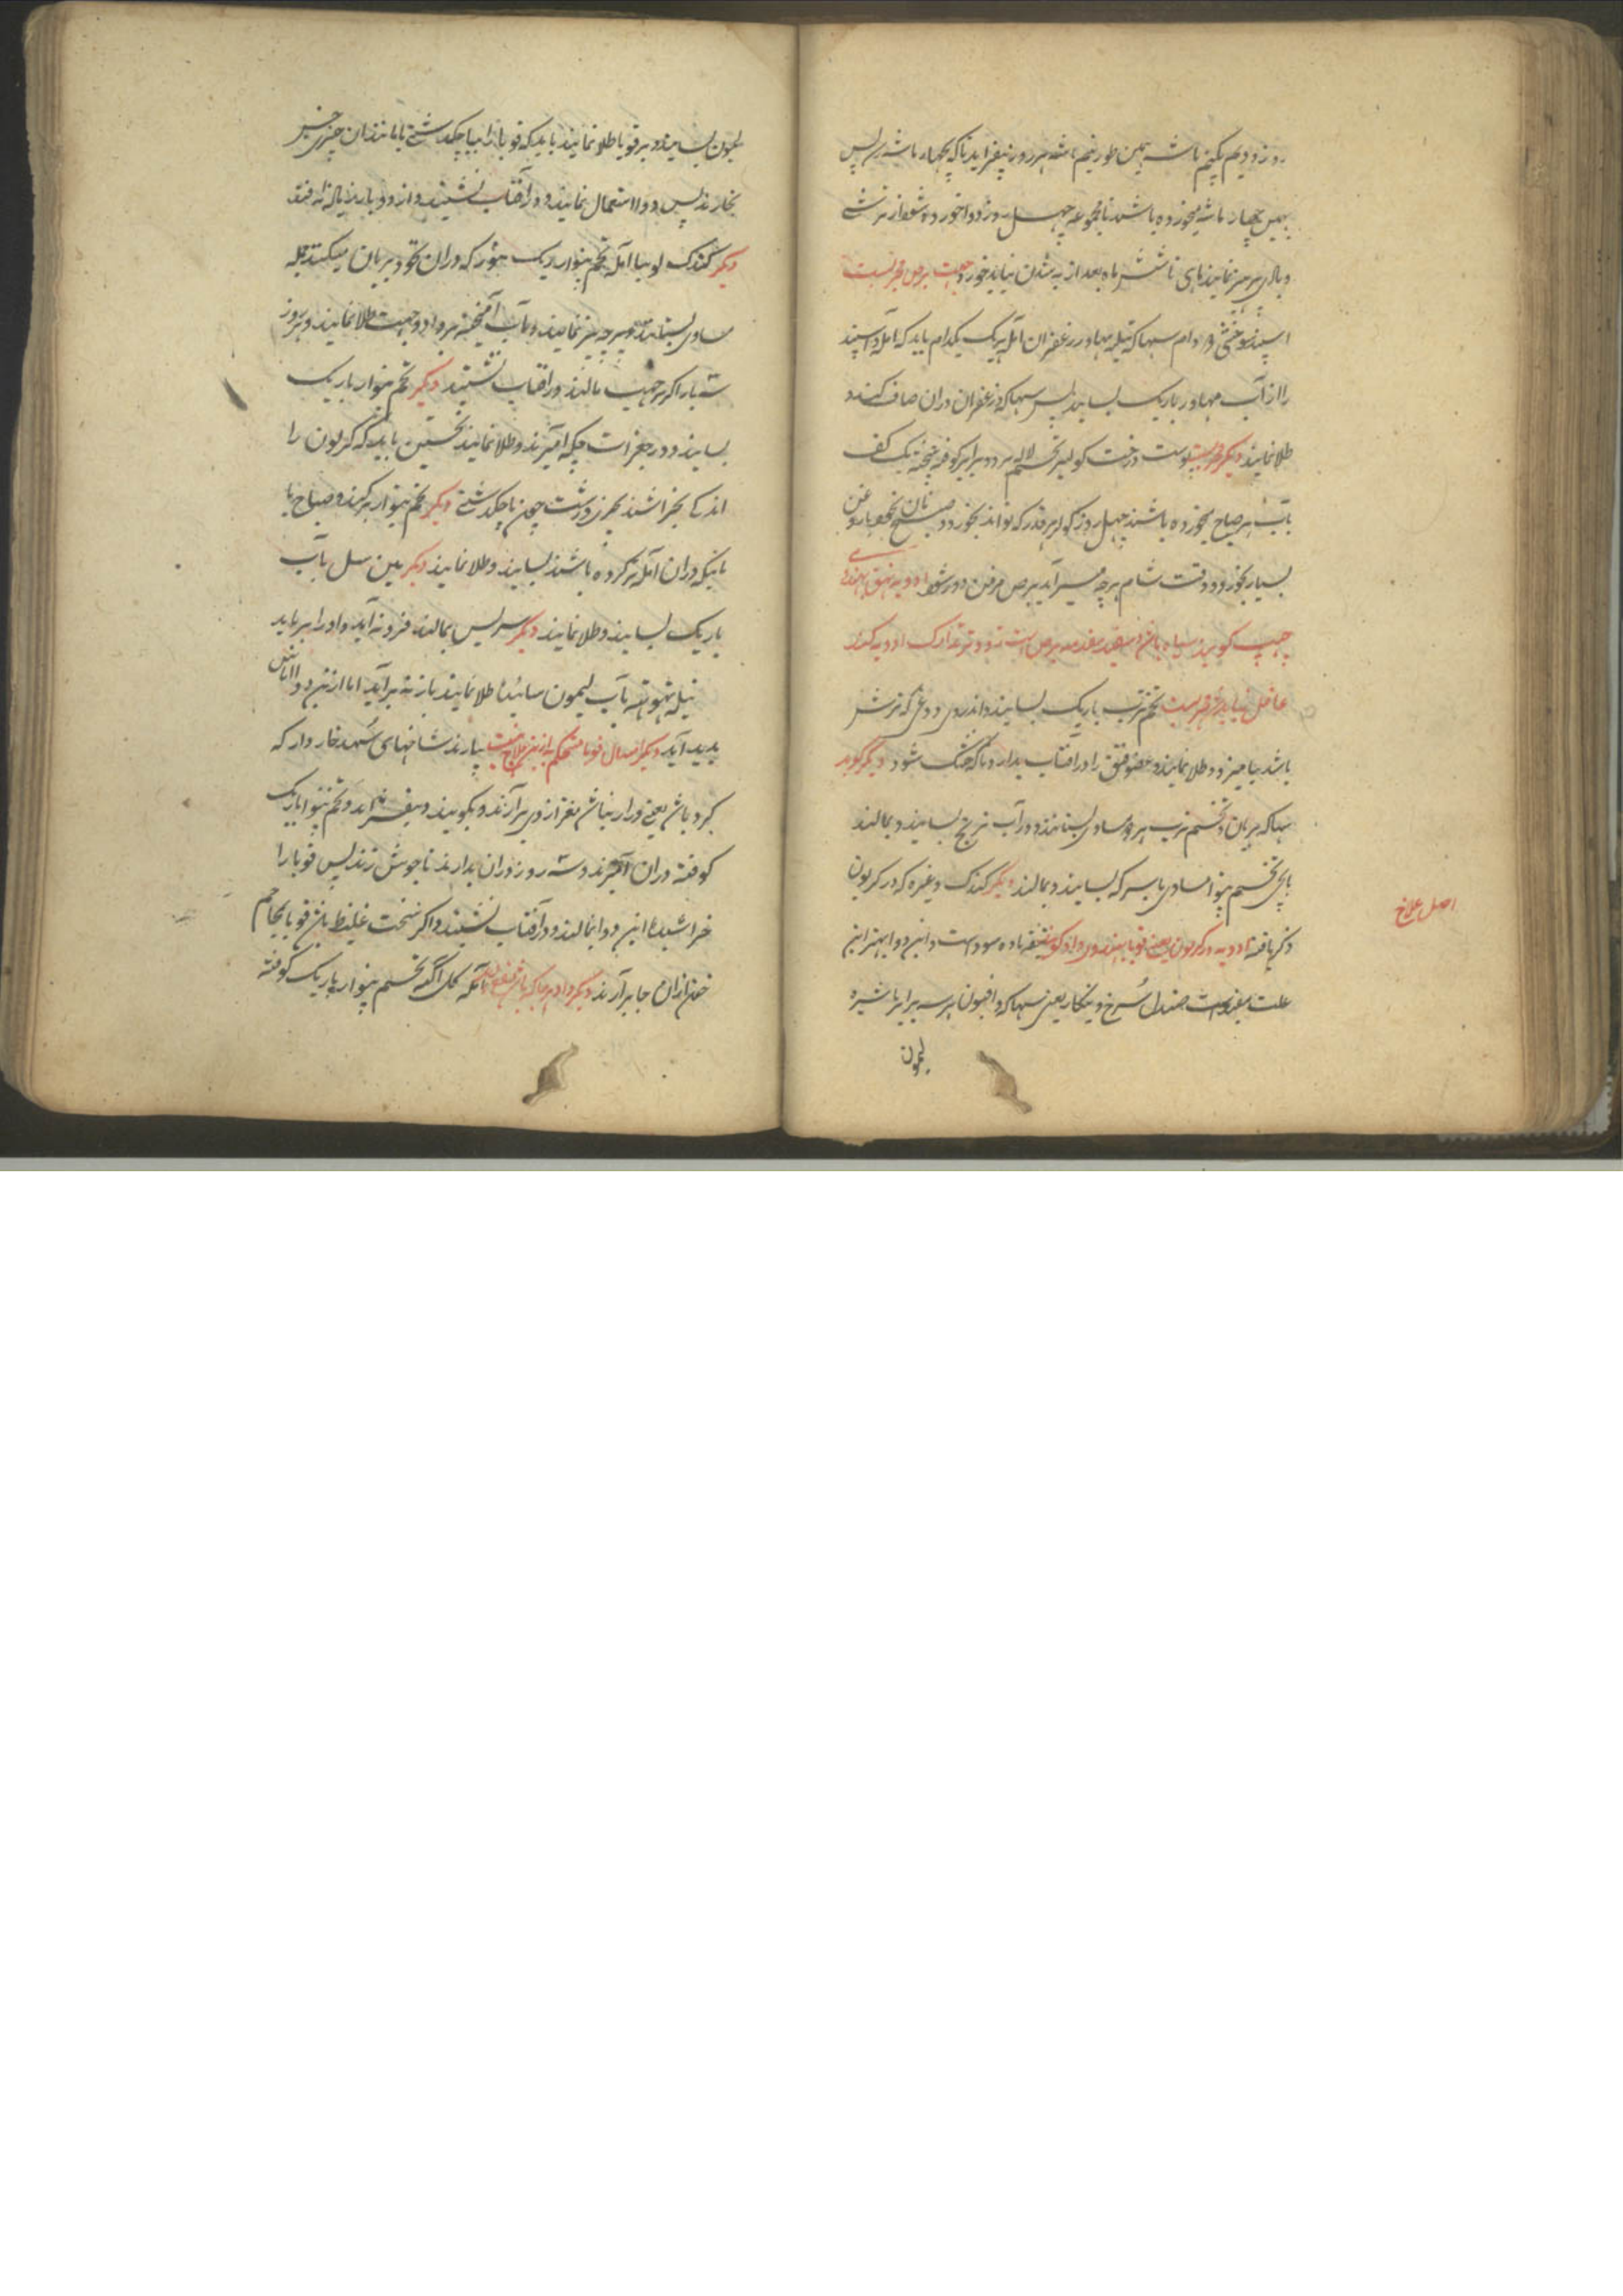 روز دویم یکنیم ماشه همین طور نیم ماشه هر روز بیفزاید تا که بچهار ماشه رسد پس
همین چهار ماشه میخورده باشند تا مجموعه چهل روز دوا خورده شود از ترشی
و بادی پرهیز نمایند ماهی تا شش ماه بعد از به شدن نباید خورد جهت برص مجربست
اسپند سوختنی دو دام سهاکه تیلیه مهاور زعفران آمله هر یک یکدام باید که آمله و اسپند
را از آب مهاور باریک بسایند پس سهاکه و زعفران دران صاف کنند و
طلا نمایند دیگر مجربست پوست درخت کولیر تخم لاله هر دو برابر کوفته بیخته یک کف
بآب هر صباح میخورده باشند چهل روز کولر هر قدر که تواند بخورد و صبح نان نخود با روغن
بسیار بخورد و وقت شام هرچه میسر آید برص مزمن دور شود ادویه بهق بهندوی
چهیپ گویند سیاه باشد و سفید مقدمه برص است زود تر تدارک او و به کنند
غافل نباید شد مجربست تخم ترب باریک بسایند و اندروی دوغی که ترش
باشد بیامیزد و طلا نمایند و عضو بهق را در آفتاب بدارد تا که خشک شود دیگر گوید
سهاکه بریان و تخم ترب هر دو مساوی بستانند و در آب ترنج بسایند و بمالند
بابچی تخم پنوار مساوی با سرکه بسایند و بمالند دیگر کندک و غیره که در کریون
ذکر یافته ادویه در کریون یعنی قوبا بهندوی داد گویند شیفته ماده سوداست و این دوا بهتر این
اصل علاج
علت بیفزاست صندل سرخ و تنکار یعنی سهاکه و افیون هر سه برابر با شیره
لیمون
لیمون بسایند و بر قوبا طلا نمایند باید که قوبا را بپاچکدشتی یا مانند آن چیزی خشن
بخارند پس دوا استعمال نمایند و در آفتاب نشینند و از دود باریزیاله
دیگر کندک لوبیا آمله تخم پنوار ریک هنوز که دران نخود بریان میکنند جمله
مساوی بستانند و پارچه بیز نمایند و بآب آمیخته بر داد و چهیپ طلا نمایند و هر روز
سه بار اگر بر چهیپ مالند در آفتاب نشینند دیگر تخم پنوار باریک
بسایند و در جغرات چکه آمیزند و طلا نمایند نخستین باید که کریون را
اندکی بخراشند بچیزی درشت چون پاچکدشتی دیگر تخم پنوار تر کنند و صباح با
بانیکه دران آمله تر کرده باشند بسایند و طلا نمایند دیگر مین سل بآب
باریک بسایند و طلا نمایند دیگر سریس بمالند فرو نه آید و او را بر باید
نیله تهوتهه بآب لیمون سائیده طلا نمایند باز نه برآید اما ازین دوا آماس
پدید آید دیگر اسهال قوبا مستحکم به ازین علاج نیست بیارند شاخهای سیهند خاردار که
کرد باش یعنی ورا نباش مغز از وی برآرند و بکوبند و بیفشرند و تخم پنوار باریک
کوفته دران آمیزند و سه روز دران بدارند تا جوش زند پس قوبا را
خراشیده این دوا بمالند و در آفتاب نشینند و اگر سخت غلیظ باشد قوبا بمحاجم
خون ازان جا برآرند دیگر داد هر جا که باشد آنکه گل آگه تخم پنوار باریک کوفته